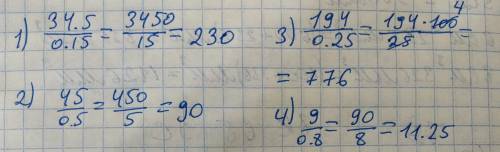 1) 34.5/0.15 = 3450/15 = 230
2) 45/0.5 = 450/5 = 90
3) 194/0.25 = 194·100 4/25 =
= 776
4) 9/0.8 = 90/8 = 11.25